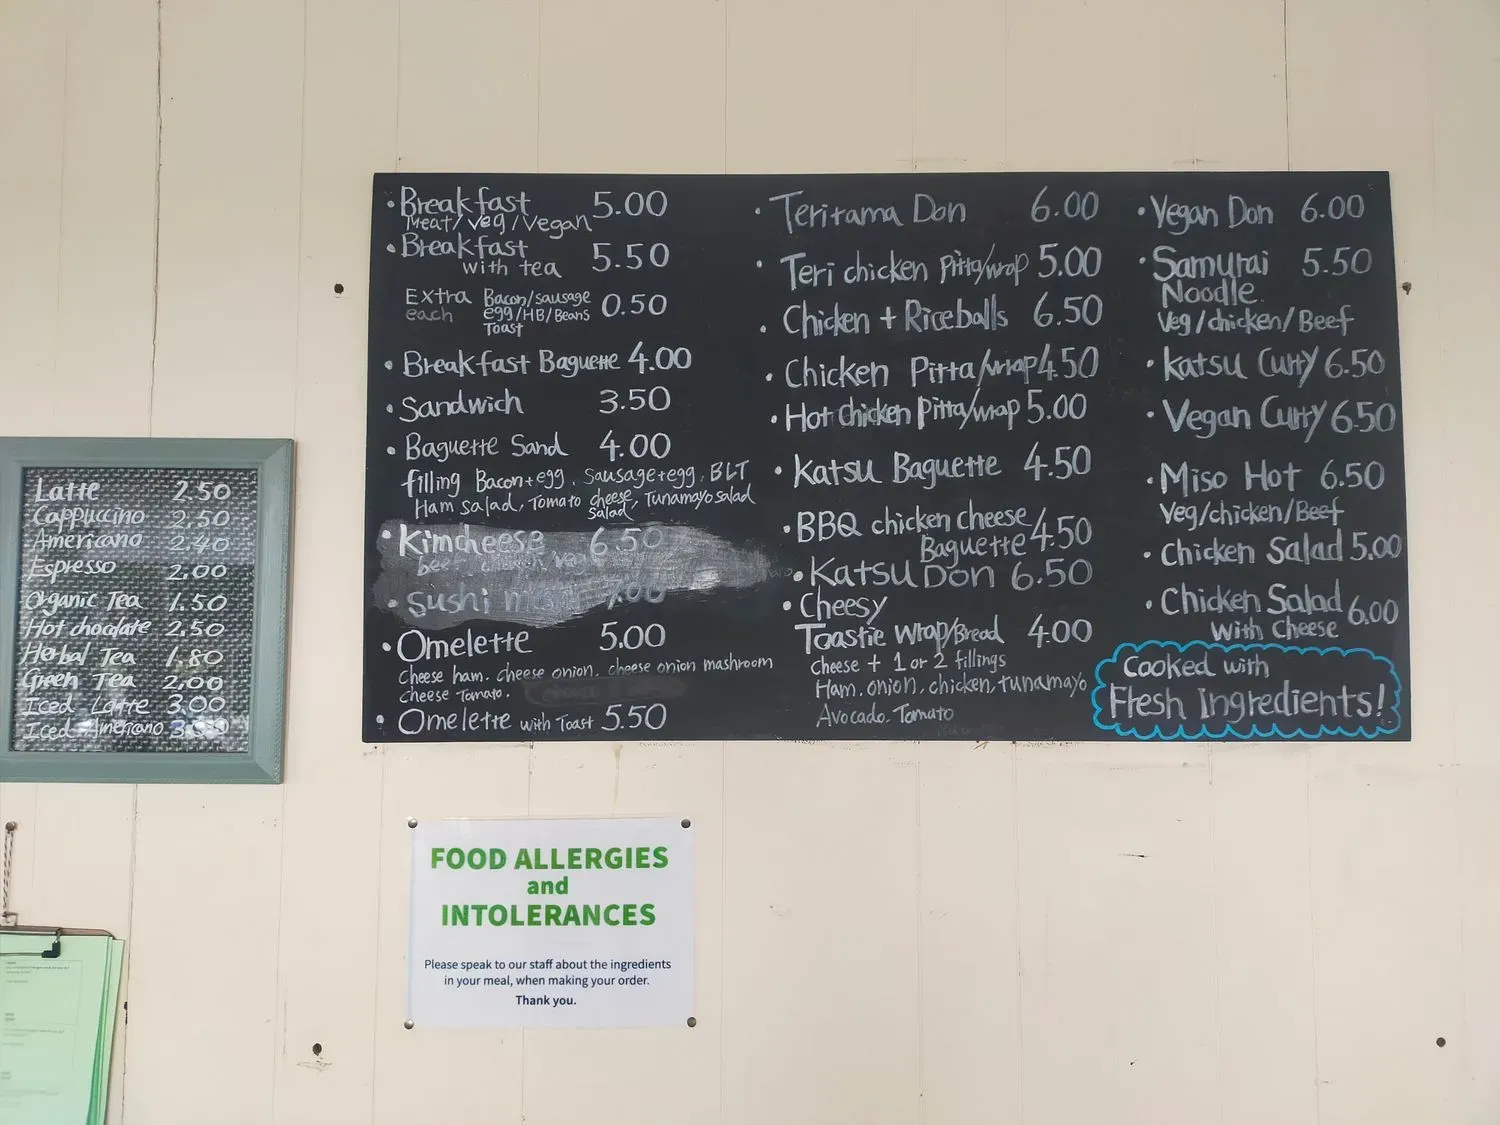 Latte 2.50
Cappuccino 2.50
Americano 2.40
Espresso 2.00
Organic Tea 1.50
Hot chocolate 2.50
Herbal Tea 1.80
Green Tea 2.00
Iced Latte 3.00
Iced Americano
• Breakfast 5.00
Meat/Veg/Vegan
• Breakfast
with tea 5.50
Extra each Bacon/sausage
egg/HB/Beans 0.50
Toast
• Breakfast Baguette 4.00
• Sandwich 3.50
• Baguette Sand 4.00
filling Bacon+egg, Sausage+egg, BLT
Ham salad, Tomato cheese salad, Tunamayo salad
• Kimcheese 6.50
• Sushi 7.00
• Omelette 5.00
Cheese ham. cheese onion, cheese onion mashroom
cheese Tomato.
• Omelette with Toast 5.50
• Teritama Don 6.00
• Teri chicken Pitta/wrap 5.00
• Chicken + Riceballs 6.50
• Chicken Pitta/wrap 4.50
• Hot chicken Pitta/wrap 5.00
• Katsu Baguette 4.50
• BBQ chicken cheese
Baguette 4.50
• Katsu Don 6.50
• Cheesy
Toastie Wrap/Bread 4.00
Cheese + 1 or 2 fillings
Ham, onion, chicken, tunamayo
Avocado. Tomato
• Vegan Don 6.00
• Samurai 5.50
Noodle
Veg/chicken/Beef
• Katsu Curry 6.50
• Vegan Curry 6.50
• Miso Hot 6.50
Veg/chicken/Beef
• Chicken Salad 5.00
• Chicken Salad 6.00
With Cheese
Cooked with
Fresh Ingredients!
FOOD ALLERGIES
and
INTOLERANCES
Please speak to our staff about the ingredients
in your meal, when making your order.
Thank you.